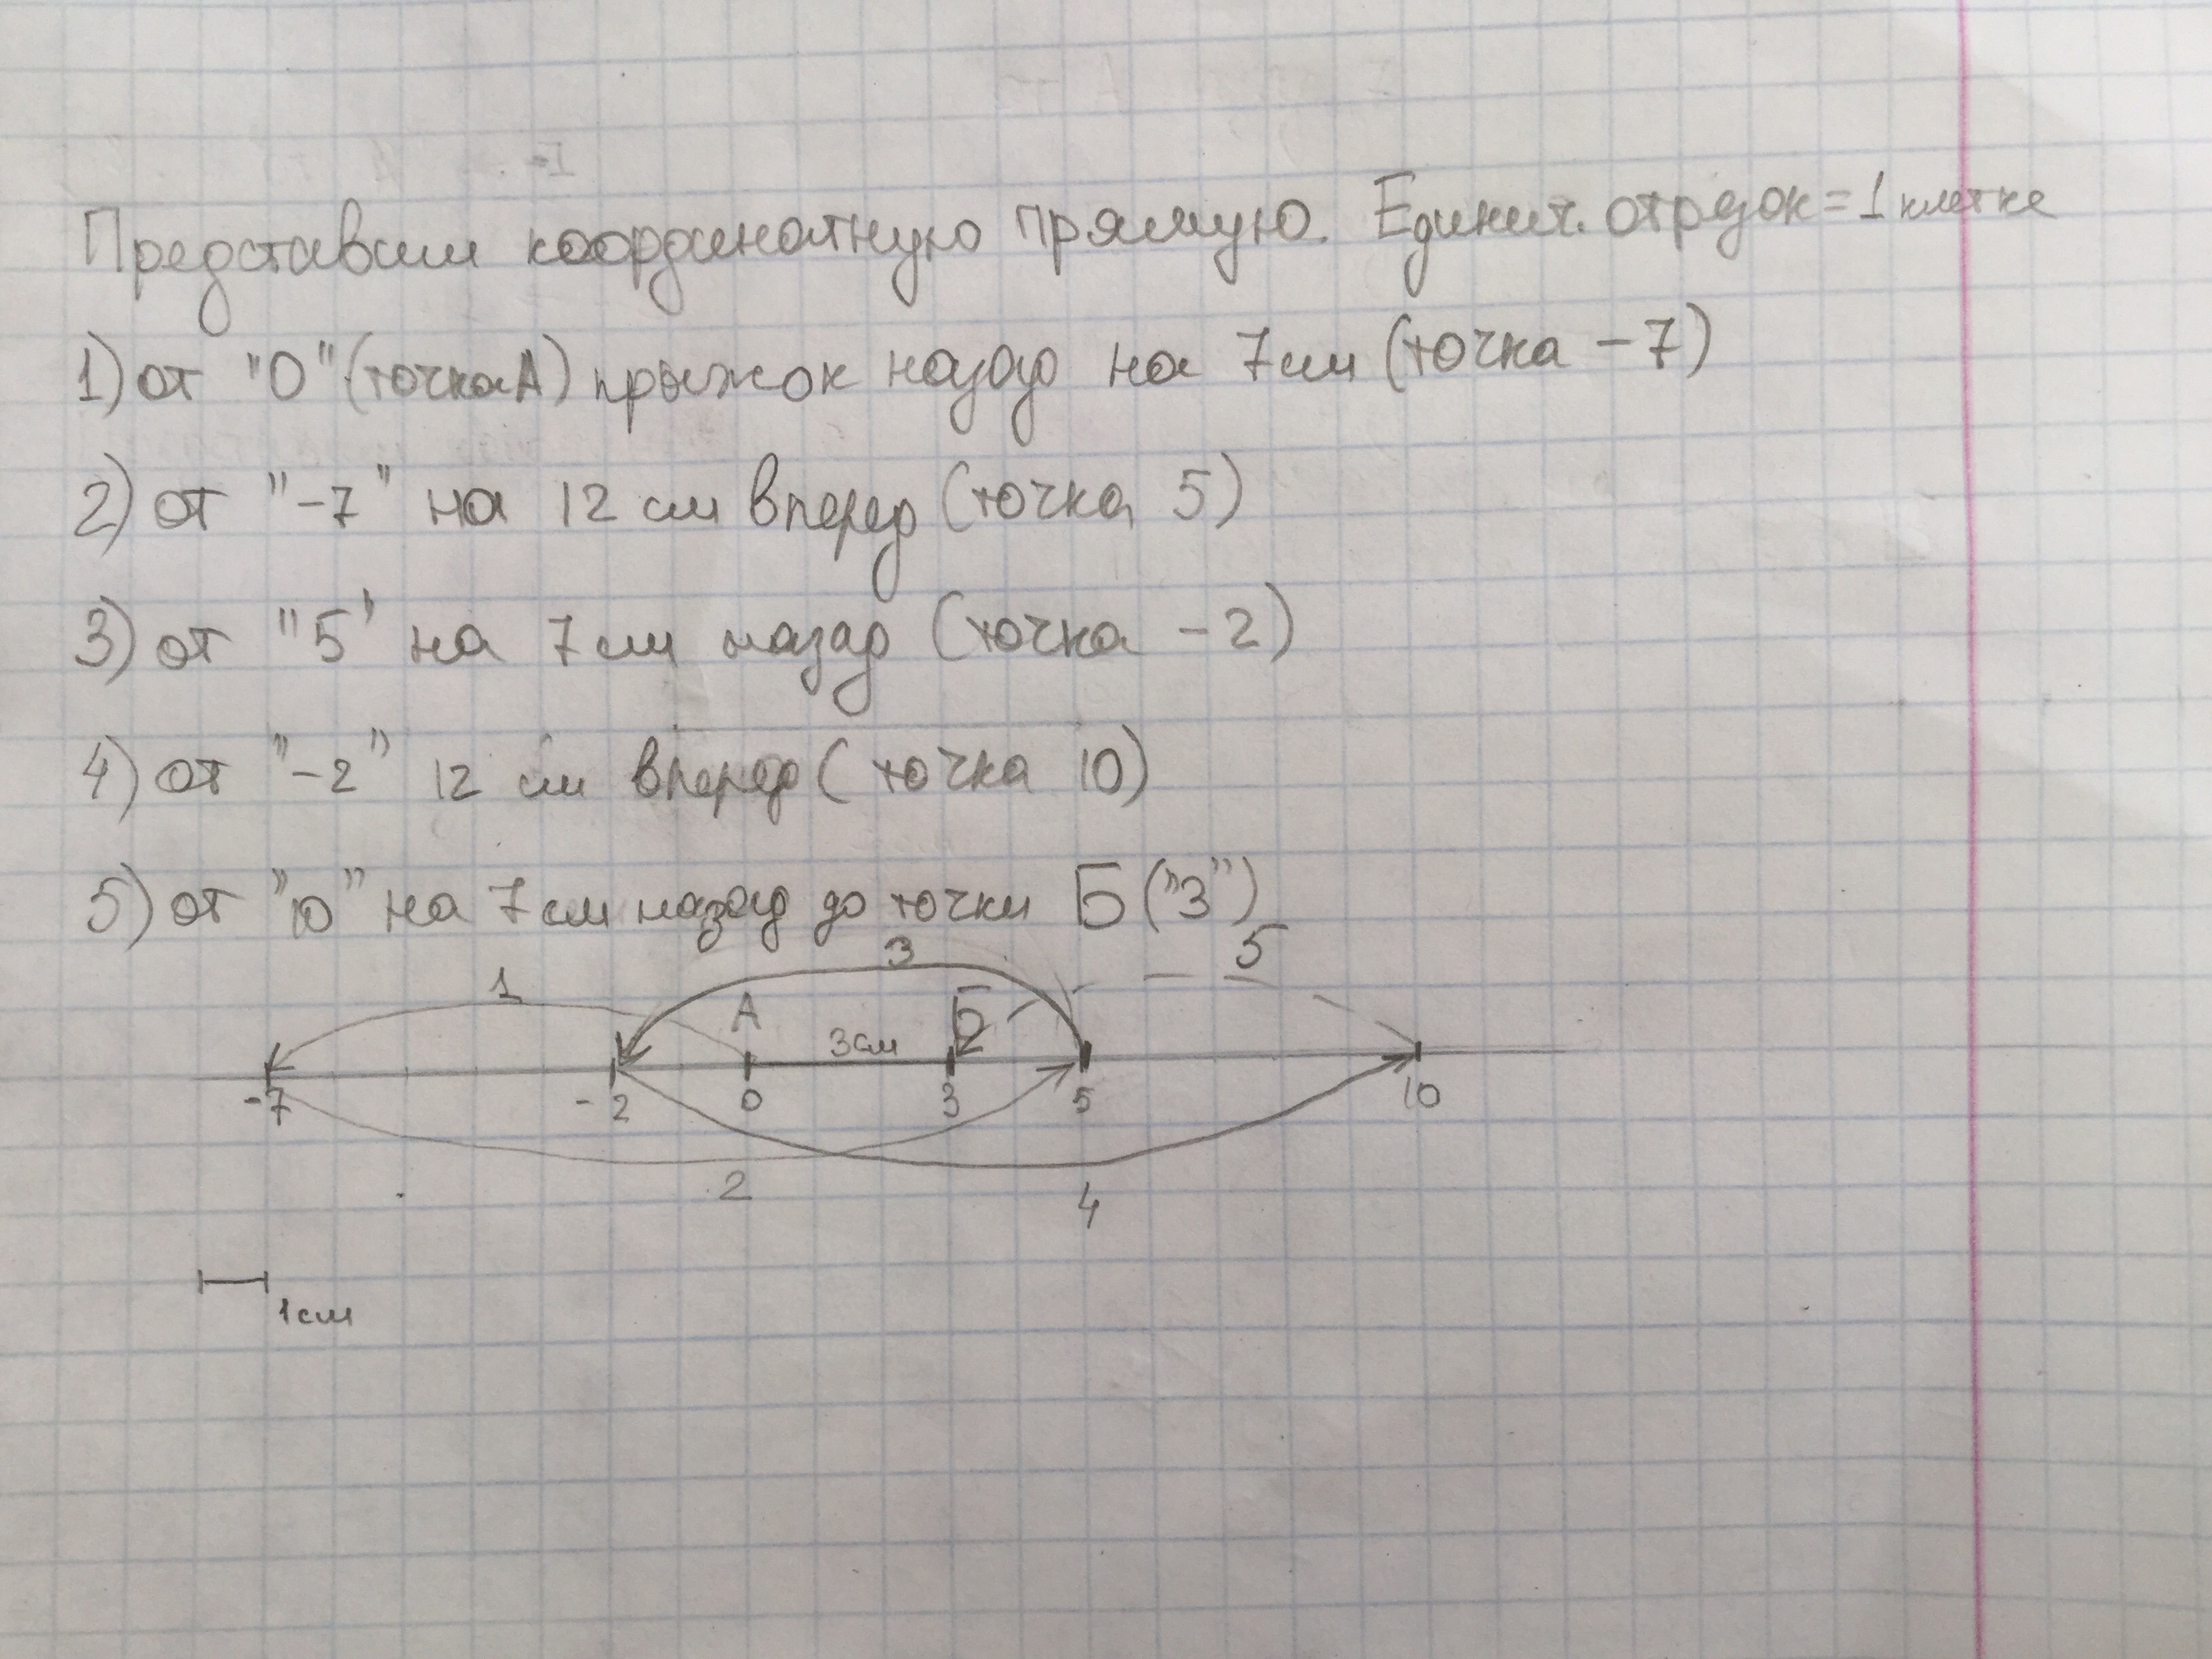 Представим координатную прямую. Единич. отрезок = 1 клетке
1) от "0" (точка А) прыжок назад на 7 см (точка -7)
2) от "-7" на 12 см вперед (точка 5)
3) от "5" на 7 см назад (точка -2)
4) от "-2" 12 см вперед (точка 10)
5) от "10" на 7 см назад до точки Б ("3")
1 3 5
А 3 см Б
-7 -2 0 3 5 10
2 4
1 см